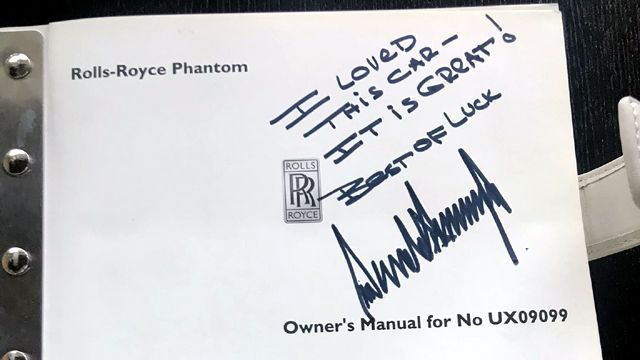 Rolls-Royce Phantom
I LOVED
THIS CAR -
IT IS GREAT!
BEST OF LUCK
ROLLS
RR
ROYCE
Owner's Manual for No UX09099